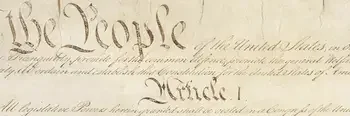 We the People of the United States, in O
tranquility, provide for the common defence, promote the general Welfare
ty, do ordain and establish this Constitution for the United States of Ame
Article. I
All legislative Powers herein granted shall be vested in a Congress of the Unit